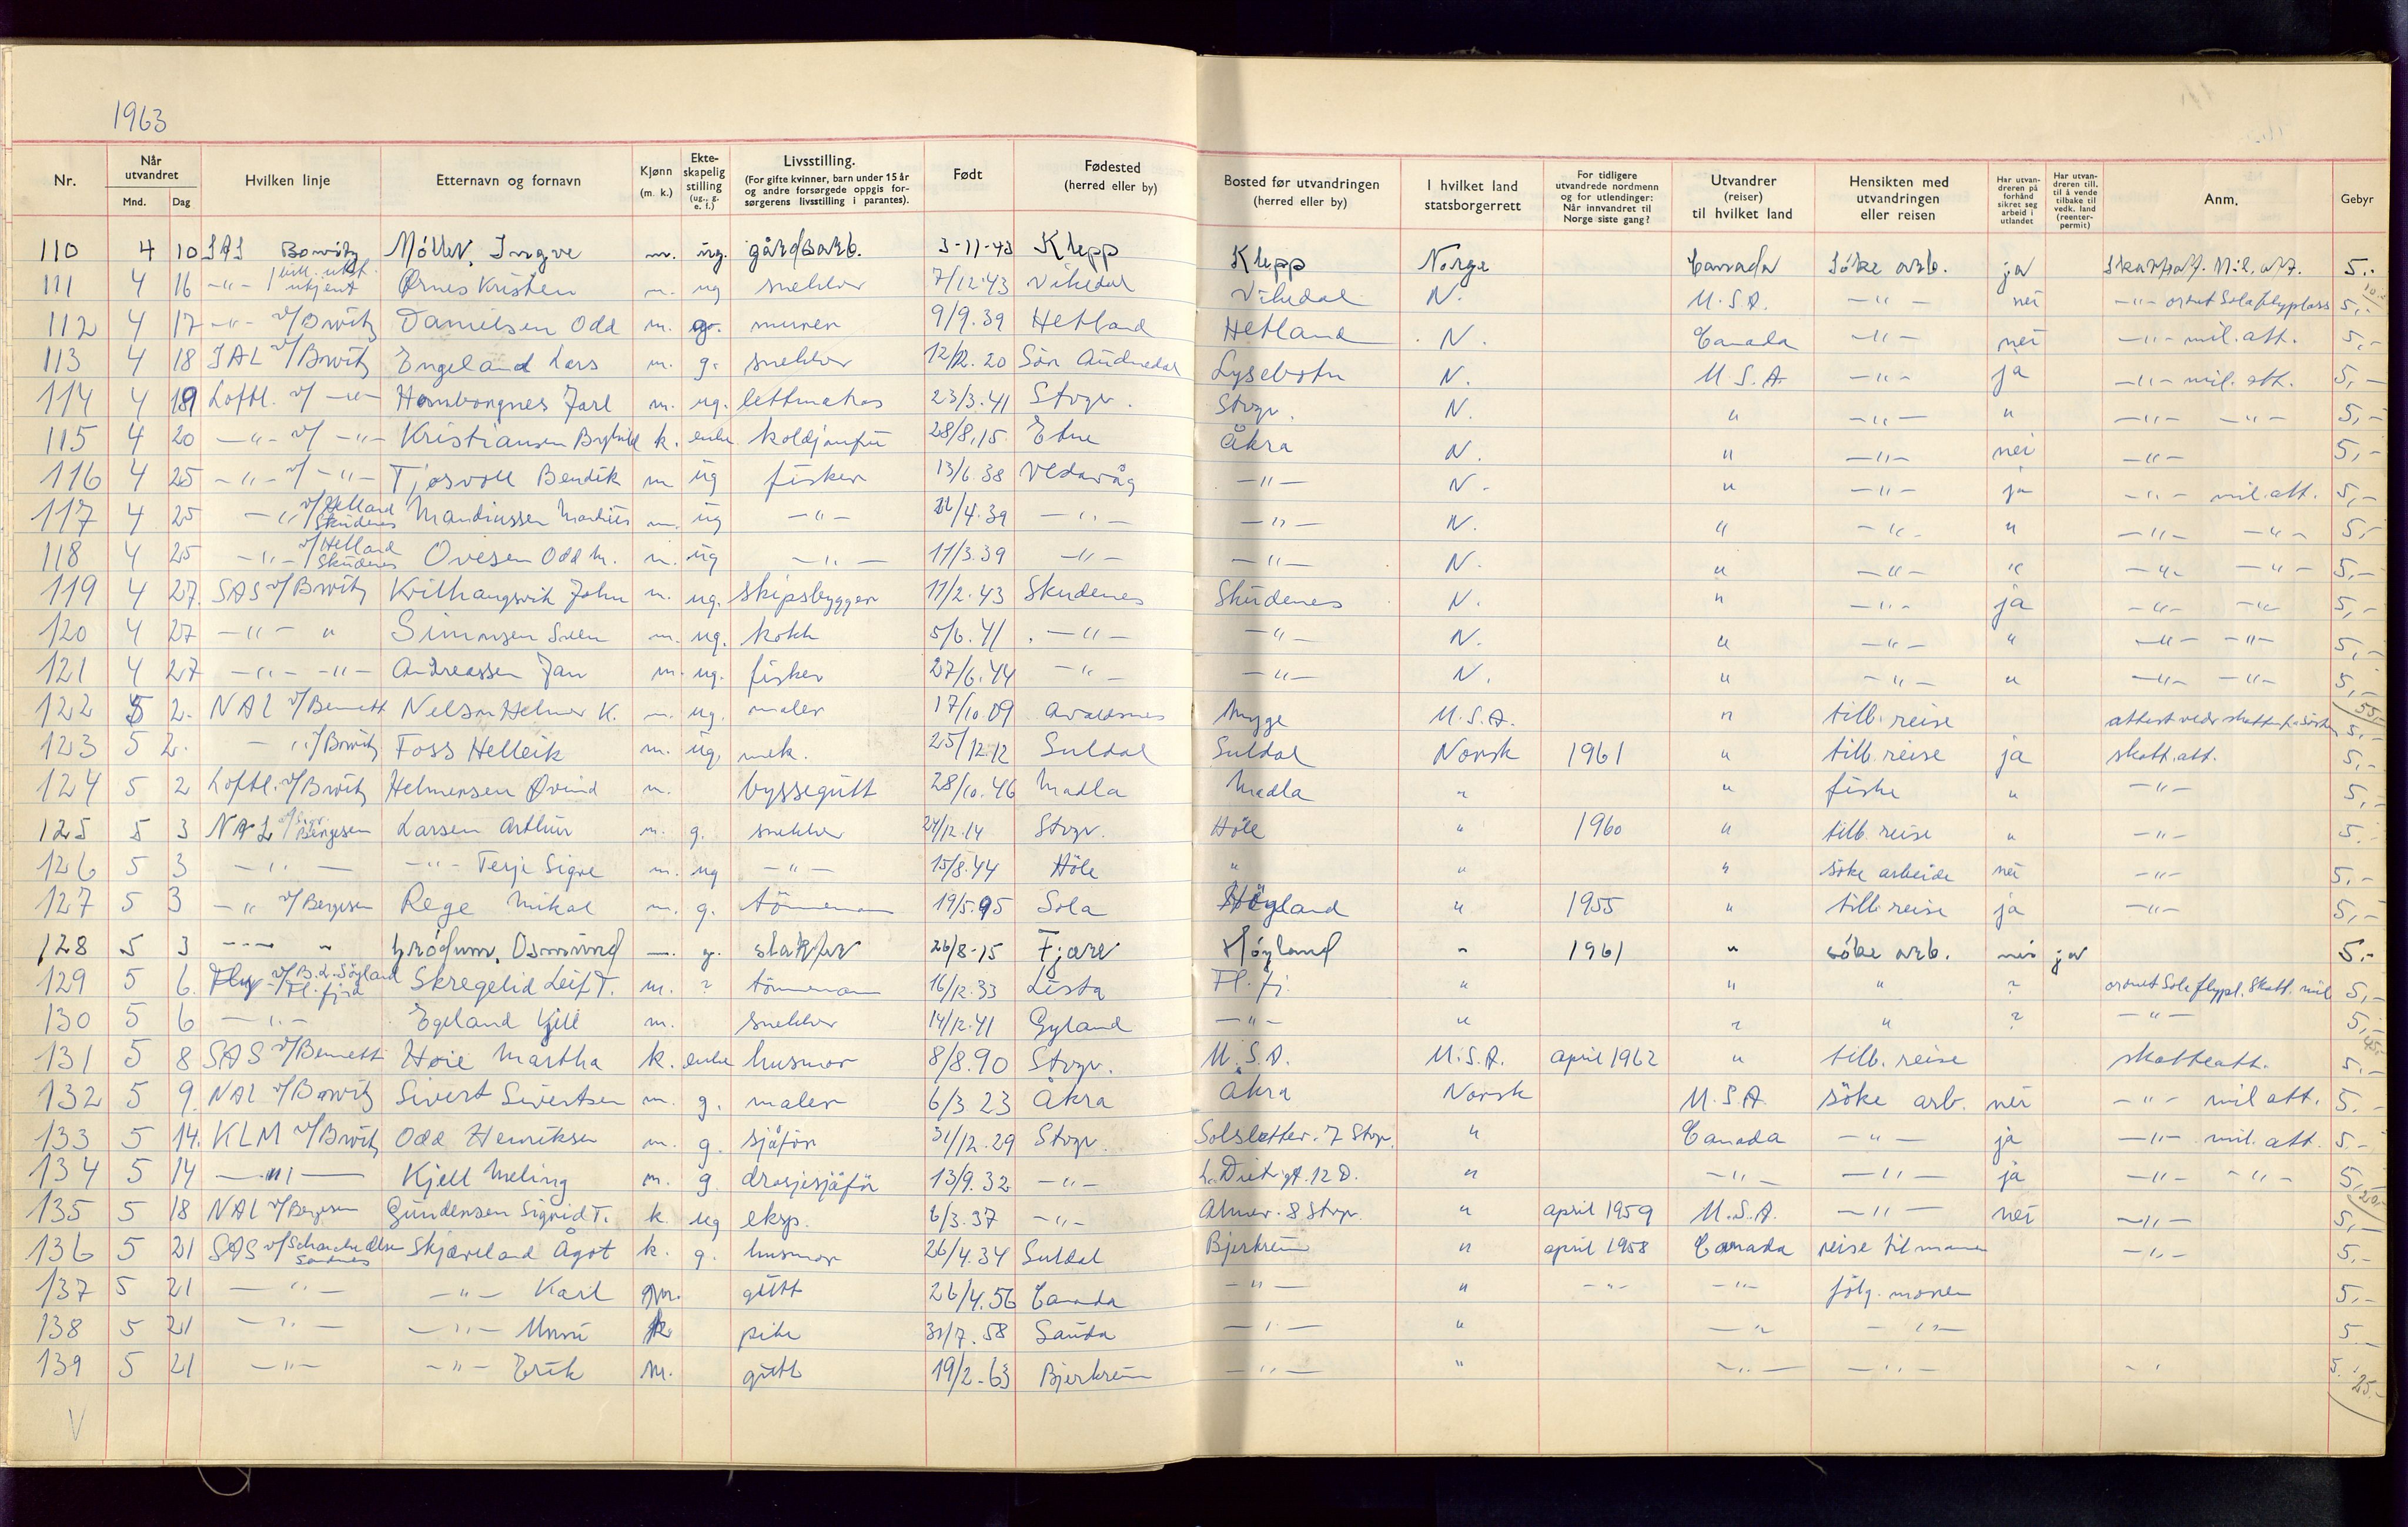 1963
Nr. Når utvandret Mnd. Dag Hvilken linje Etternavn og fornavn Kjønn (m. k.) Ekteskapelig stilling (ug., g. e. f.) Livsstilling. (For gifte kvinner, barn under 15 år og andre forsørgede oppgis forsørgerens livsstilling i parantes). Født Fødested (herred eller by) Bosted før utvandringen (herred eller by) I hvilket land statsborgerrett For tidligere utvandrede nordmenn og for utlendinger: Når innvandret til Norge siste gang? Utvandrer (reiser) til hvilket land Hensikten med utvandringen eller reisen Har utvandreren på forhånd sikret seg arbeid i utlandet Har utvandreren till. til å vende tilbake til vedk. land (reenterpermit) Anm. Gebyr
110 4 10 SAS Bowitz Møller, Ingve m. ug. gårdsarb. 3-11-43 Klepp Klepp Norge Canada Söke arb. ja Skatteatt. Mil. att. 5.-
111 4 16 -"- ukjent Ørnes Kristen m. ug snekker 7/12.43 Vikedal Vikedal N. U.S.A. -"- nei -"- ordnet Sola flyplass 5,-
112 4 17 -"- v/Bowitz Danielsen Odd m. g. murer 9/9.39 Hetland Hetland N. Canada -"- nei -"- mil. att. 5,-
113 4 18 SAL v/Bowitz Engeland Lars m. g. snekker 12/12.20 Sör Audnedal Lysebotn N. U.S.A. -"- ja -"- mil. att. 5,-
114 4 19 Loftl. v/ -"- Jarl m. ug. lettmatros 23/3.41 Stvgr. Stvgr. N. " -"- " -"- -"- 5,-
115 4 20 -"- v/ -"- Kristiansen k. enke koldjomfru 28/8.15 Etne Åkra N. " -"- nei -"- 5,-
116 4 25 -"- v/ -"- Tjøsvoll Bendik m ug fisker 13/6.38 Vedavåg -"- N. " -"- ja -"- mil. att. 5,-
117 4 25 -"- v/Helland Skudenes Mandiussen m. ug -"- /4.39 -"- -"- N. " -"- " -"- -"- 5,-
118 4 25 -"- v/Helland Skudenes Ovesen Odd M. m. ug -"- 11/3.39 -"- -"- N. " -"- " -"- -"- 5,-
119 4 27. SAS v/Bowitz John m. ug. skipsbygger 11/2.43 Skudenes Skudenes N. " -"- ja -"- -"- 5,-
120 4 27 -"- " Simonsen Sven m. ug. kokk 5/6.41 -"- -"- N. " -"- " -"- -"- 5,-
121 4 27 -"- -"- Andreassen Jan m. ug. fisker 27/6.44 -"- -"- N. " -"- " -"- -"- 5,-
55,-
122 5 2. NAL v/Bennett Nelson Helmer K. m. ug. maler 17/10.09 Avaldsnes Mygge U.S.A. " tilb. reise attest vedr. skatt 5,-
123 5 2. -"- v/Bowitz Foss Helleik m. ug. mek. 25/12.12 Suldal Suldal Norsk 1961 " tilb. reise ja skatt. att. 5,-
124 5 2 Loftl. v/Bowitz Helmersen Øvind m. byssegutt 28/10.46 Madla Madla " " fiske " -"- 5,-
125 5 3 NAL v/Sigv. Bergesen Larsen Arthur m. g. snekker 24/12.14 Stvgr. Höle " 1960 " tilb. reise " -"- 5,-
126 5 3 -"- -"- Terje Sigve m. ug -"- 15/8.44 Höle " " " söke arbeide nei -"- 5,-
127 5 3 -"- v/Bergesen Rege Mikal m. g. tömmermann 19/5.95 Sola Höyland " 1955 " tilb. reise ja -"- 5,-
128 5 3 -"- " Grödum, Osmund m. g. 26/8-15 Fjære Höyland " 1961 " söke arb. nei ja 5.-
129 5 6. Fly v/B.L. Söyland Fl.fjord Skregelid Leif T. m. ? tömmermann 16/12.33 Lista Fl. fj. " " " ? ordnet Sola flypl. Skatt. mil 5,-
130 5 6 -"- Egeland Kjell m. snekker 14/12.41 Gyland -"- " " " ? -"- 5,-
45,-
131 5 8 SAS v/Bennett Høie Martha k. enke husmor 8/8.90 Stvgr. U.S.A. U.S.A. april 1962 " tilb. reise skatteatt. 5,-
132 5 9. NAL v/Bowitz Sivert Sivertsen m. g. maler 6/3 23 Åkra Åkra Norsk U.S.A. söke arb. nei -"- mil att. 5.-
133 5 14. KLM v/Bowitz Odd Henriksen m. g. sjåför 31/12.29 Stvgr. Solsletter. 7 Stvgr. " Canada -"- ja -"- mil. att. 5,-
134 5 14 -"- Kjell Meling m. g. drosjesjåför 13/9.32 -"- 12 D. " -"- -"- ja -"- -"- 5,-
20,-
135 5 18 NAL v/Bergesen Gundersen Sigrid T. k. ug eksp. 6/3.37 -"- 8 Stvgr. " april 1959 U.S.A. -"- nei -"- 5,-
136 5 21 SAS v/ Sandnes Skjæveland Ågot k. g. husmor 26/4.34 Suldal Bjerkreim " april 1958 Canada reise til mannen -"- 5,-
137 5 21 -"- -"- Karil m. gutt 26/4.56 Canada -"- " -"- -"- fölg. moren 5,-
138 5 21 -"- -"- Unni k pike 31/7.58 Sauda -"- " -"- -"- 5
139 5 21 -"- -"- Erik m. gutt 19/2.63 Bjerkreim -"- " -"- -"- -"- 5.
25.-
V